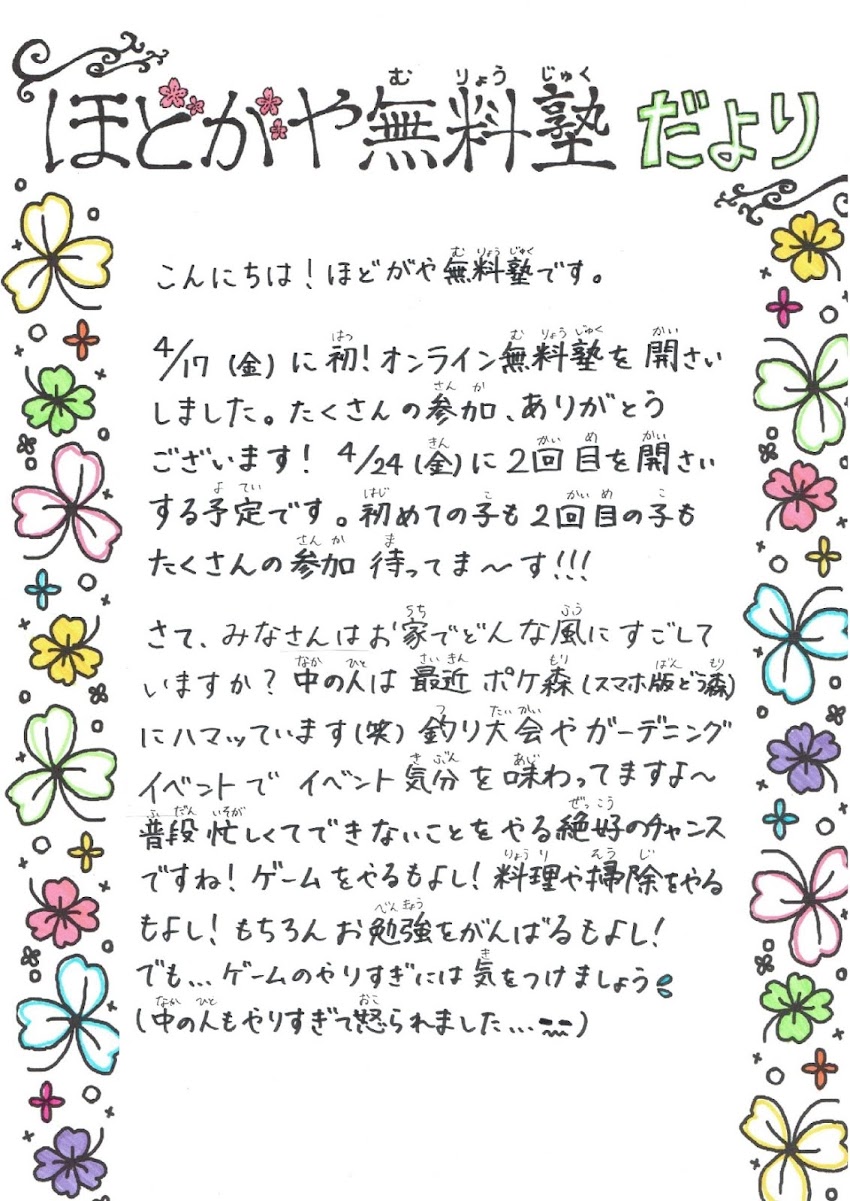 ほどがや無料塾だより
こんにちは！ほどがや無料塾です。
4/17(金)に初！オンライン無料塾を開さい
しました。たくさんの参加、ありがとう
ございます！ 4/24(金)に2回目を開さい
する予定です。初めての子も2回目の子も
たくさんの参加 待ってま～す!!!
さて、みなさんはお家でどんな風にすごして
いますか？中の人は最近 ポケ森(スマホ版どう森)
にハマッています(笑) 釣り大会やガーデニング
イベントで イベント気分を味わってますよ～
普段忙しくてできないことをやる絶好のチャンス
ですね！ゲームをやるもよし！料理や掃除をやる
もよし！もちろんお勉強をがんばるもよし！
でも…ゲームのやりすぎには気をつけましょう
(中の人もやりすぎて怒られました…)